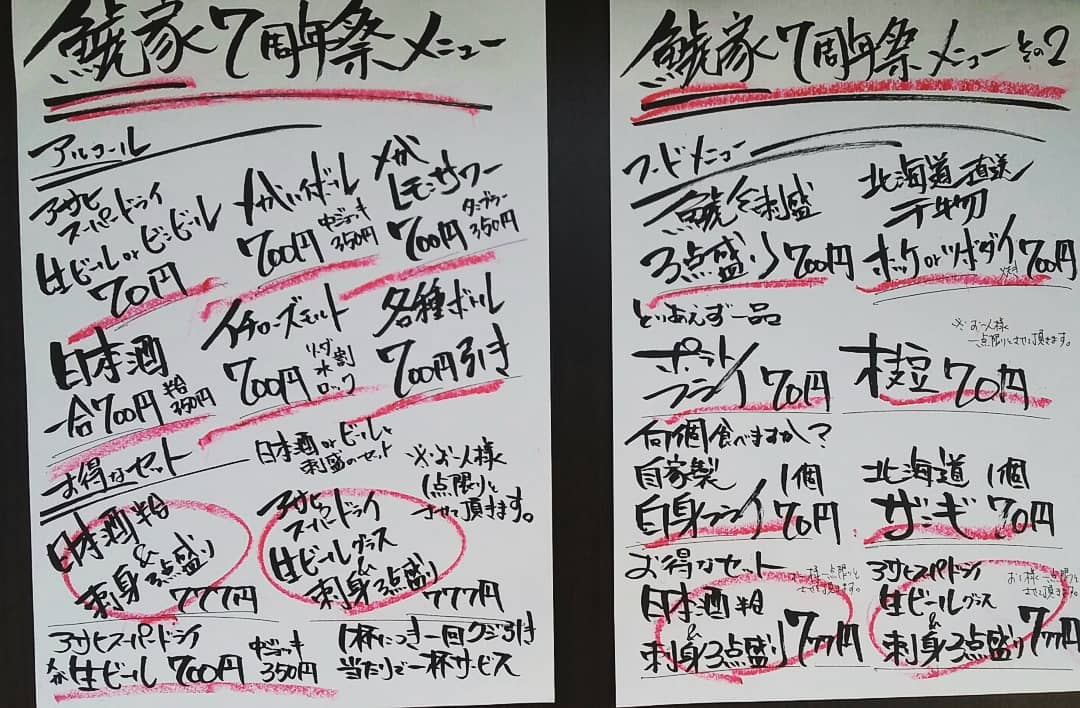 鯱家7周年祭メニュー
アルコール
アサヒ
スーパードライ
生ビールorビンビール
70円
メガハイボール
700円 中ジョッキ 350円
メガ
レモンサワー
700円 タンブラー 350円
日本酒
一合700円 半合 350円
イチローズモルト
700円 ソーダ 水割 ロック
各種ボトル
700円引き
お得なセット
日本酒orビールと
刺盛のセット
※お一人様
1点限りと
させて頂きます。
日本酒半合
&
刺身3点盛り
777円
アサヒ
スーパードライ
生ビールグラス
&
刺身3点盛り
777円
アサヒスーパードライ
メガ生ビール700円 中ジョッキ 350円
1杯につき一回クジ引き
当たりで一杯サービス
鯱家7周年祭メニューその2
フードメニュー
鯱家刺盛
3点盛り700円
北海道直送
干物
ホッケorツボダイ焼き700円
とりあえず一品
※お一人様
一点限りとさせて頂きます。
ポテト
フライ70円
枝豆70円
何個食べますか?
自家製 1個
白身フライ70円
北海道 1個
ザンギ70円
お得なセット
お一人様一点限りと
させて頂きます。
日本酒半合
&
刺身3点盛り777円
アサヒスーパードライ
お一人様一点限りと
させて頂きます。
生ビールグラス
&
刺身3点盛り777円